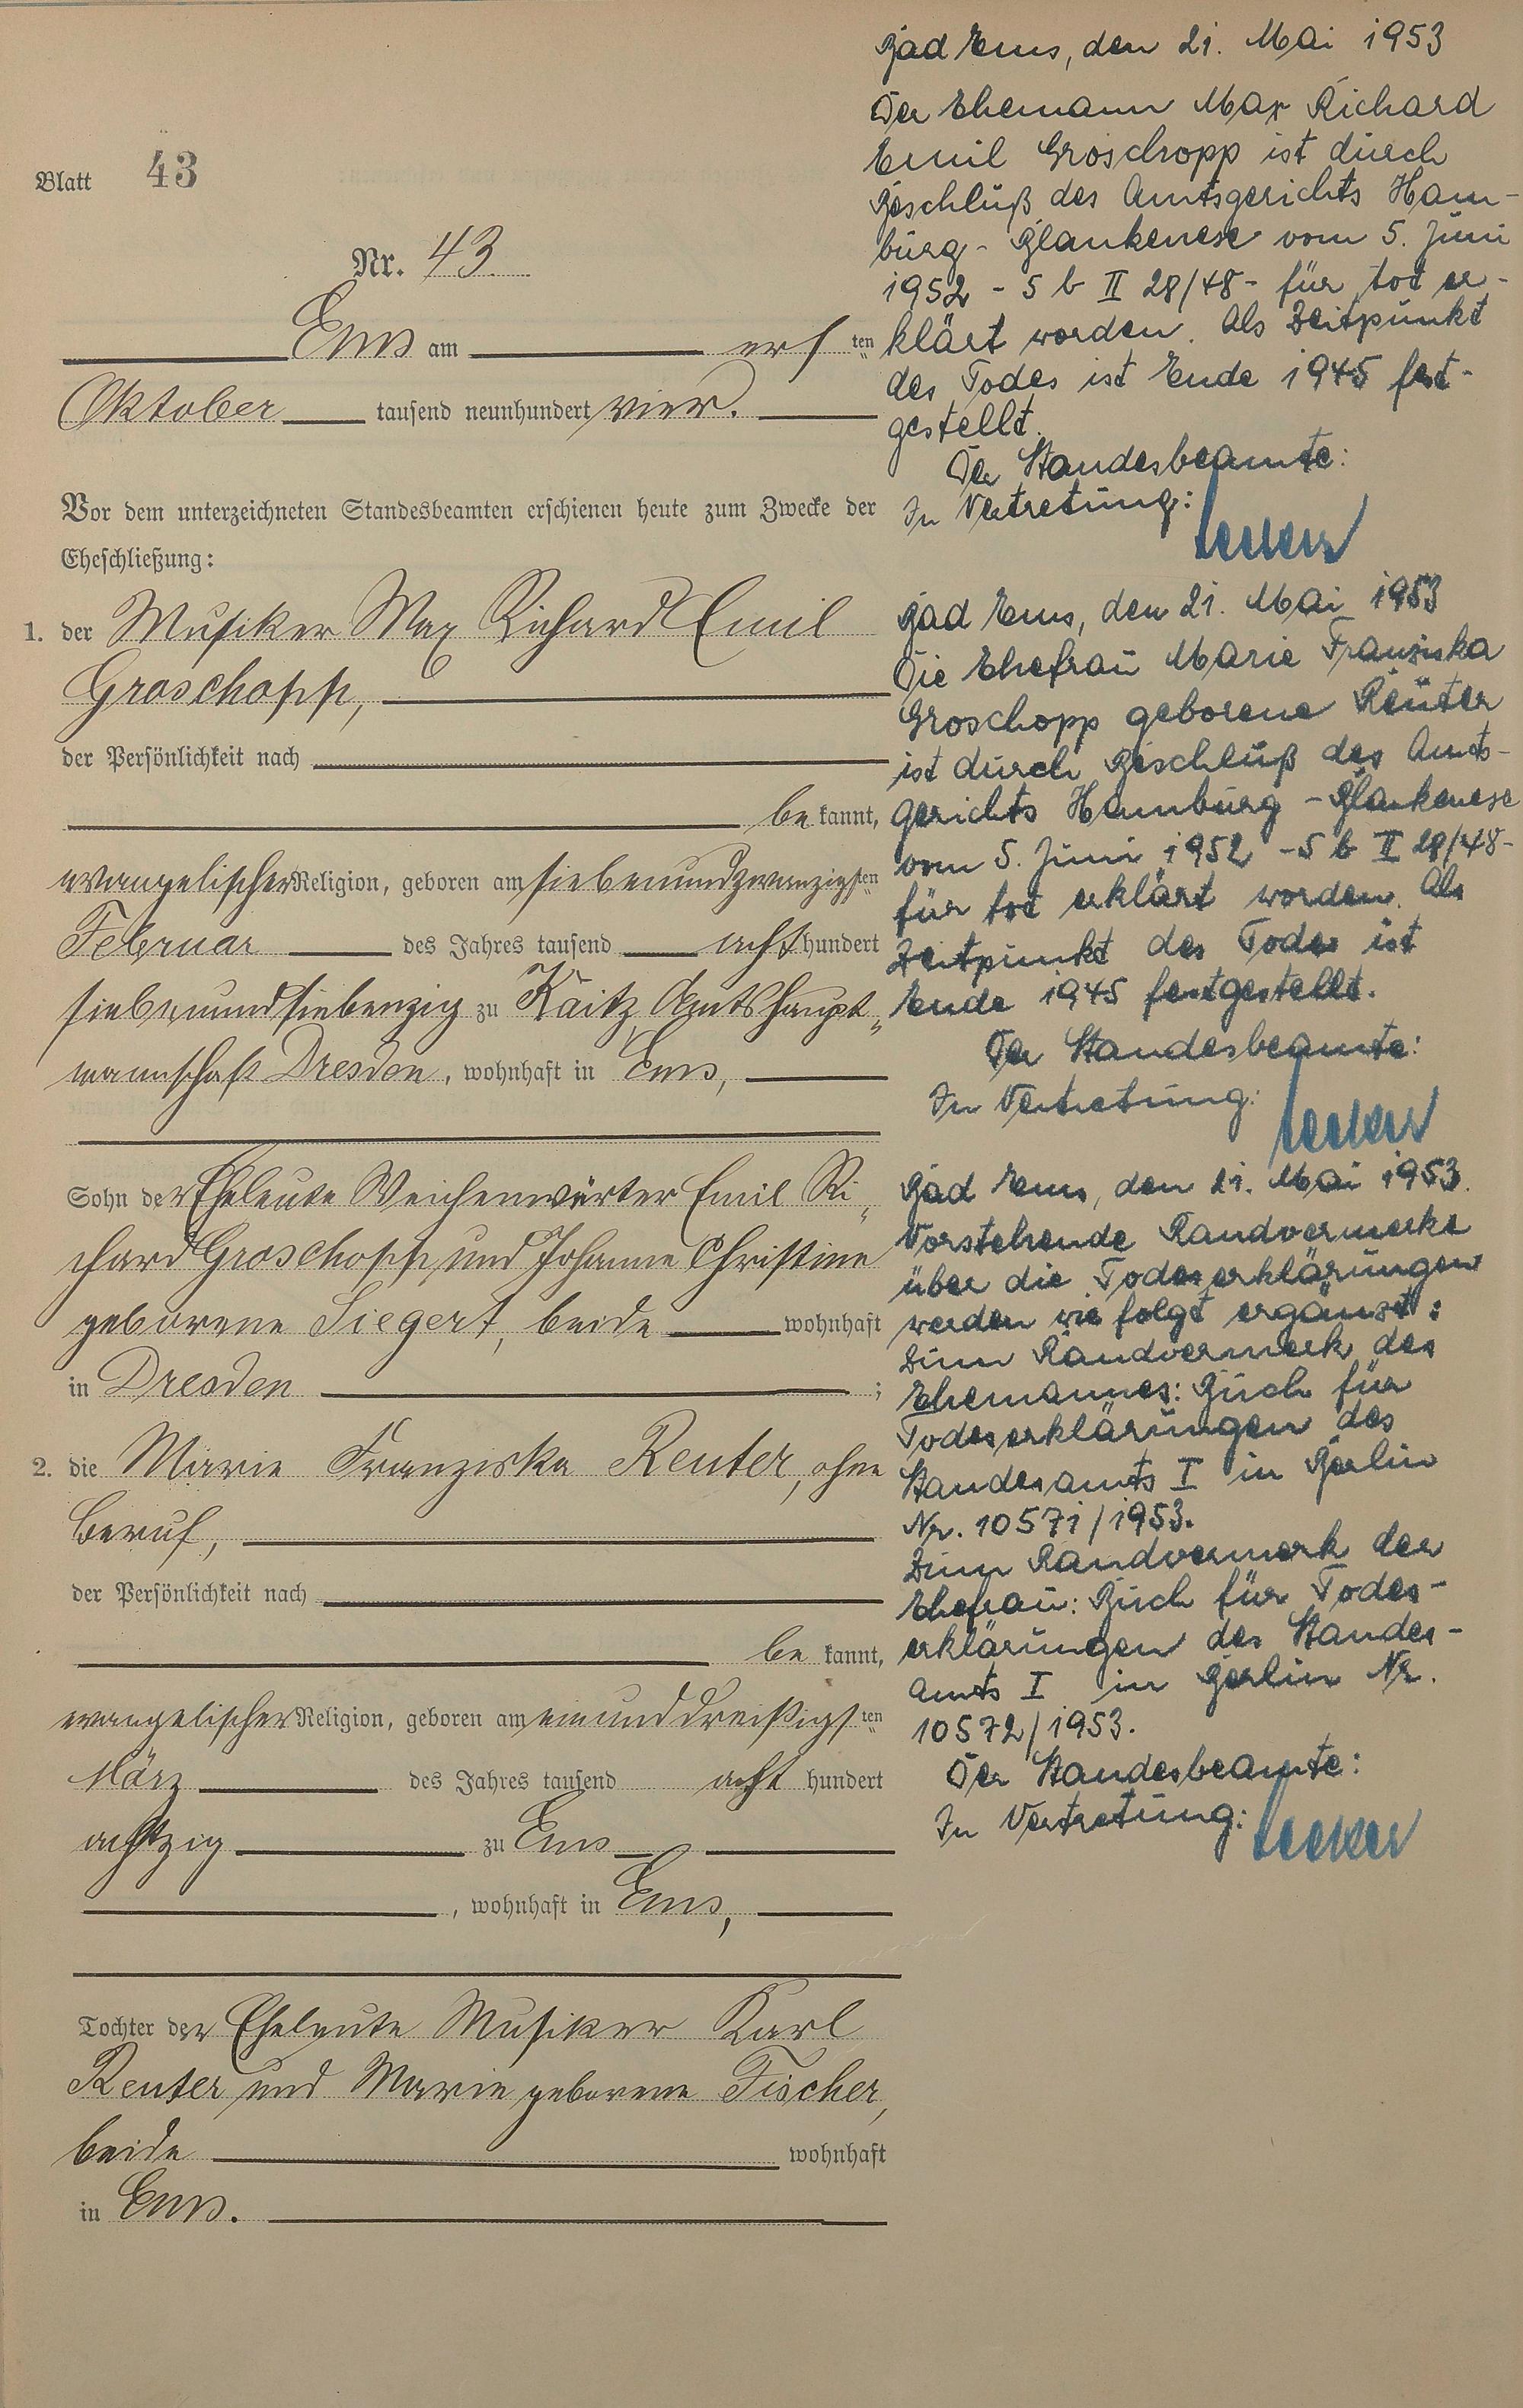 Blatt 43
Nr. 43.
Ems am ersten
Oktober tausend neunhundert vier.
Vor dem unterzeichneten Standesbeamten erschienen heute zum Zwecke der
Eheschließung:
1. der Musiker Max Richard Emil
Groschopp,
der Persönlichkeit nach
be kannt,
evangelischer Religion, geboren am siebenundzwanzigsten
Februar des Jahres tausend acht hundert
siebenundsiebenzig zu Kaitz, Amtshaupt„
mannschaft Dresden, wohnhaft in Ems,
Sohn der Eheleute Weichenwärter Emil Ri„
chard Groschopp und Johanne Christine
geborene Siegert, beide wohnhaft
in Dresden ;
2. die Marie Franziska Reuter, ohne
Beruf,
der Persönlichkeit nach
be kannt,
evangelischer Religion, geboren am einunddreißigsten
März des Jahres tausend acht hundert
achtzig zu Ems
, wohnhaft in Ems,
Tochter der Eheleute Musiker Karl
Reuter und Marie geborene Fischer,
beide wohnhaft
in Ems.
Bad Ems, den 21. Mai 1953
Der Ehemann Max Richard
Emil Groschopp ist durch
Beschluß des Amtsgerichts Ham-
burg-Blankenese vom 5. Juni
1952 - 5 b II 28/48 - für tot er-
klärt worden. Als Zeitpunkt
des Todes ist Ende 1945 fest-
gestellt.
Der Standesbeamte:
In Vertretung:
Bad Ems, den 21. Mai 1953
Die Ehefrau Marie Franziska
Groschopp geborene Reuter
ist durch Beschluß des Amts-
gerichts Hamburg-Blankenese
vom 5. Juni 1952 - 5 b II 28/48 -
für tot erklärt worden. Als
Zeitpunkt des Todes ist
Ende 1945 festgestellt.
Der Standesbeamte:
In Vertretung:
Bad Ems, den 21. Mai 1953.
Vorstehende Randvermerke
über die Todeserklärungen
werden wie folgt ergänzt:
Zum Randvermerk des
Ehemannes: Buch für
Todeserklärungen des
Standesamts I in Berlin
Nr. 10571/1953.
Zum Randvermerk der
Ehefrau: Buch für Todes-
erklärungen des Standes-
amts I in Berlin Nr.
10572/1953.
Der Standesbeamte:
In Vertretung: